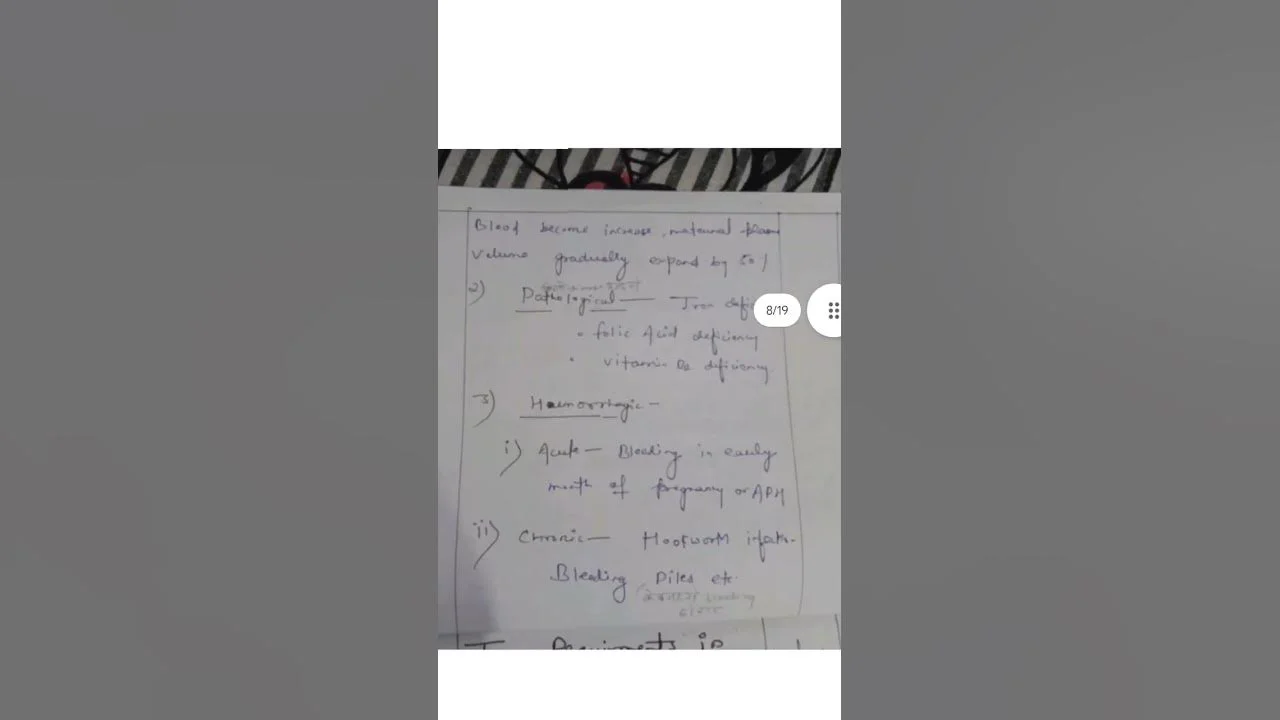 Blood become increase, maternal plasm
Volume gradually expand by 50%
2) Pathological — Iron defic
8/19
• folic Acid deficiency
• vitamin B12 deficiency
3) Haemorrhagic –
i) Acute — Bleeding in early
month of pregnancy or APH
ii) Chronic — Hookworm infectn.
Bleeding Piles etc.
bleeding
Requirments in